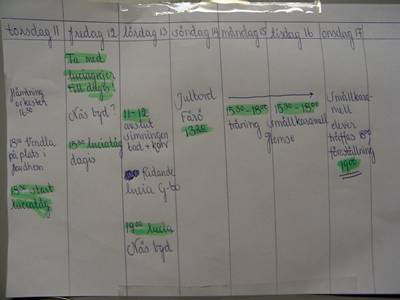 torsdag 11
fredag 12
lördag 13
söndag 14
måndag 15
tisdag 16
onsdag 17
Hämtning
orkester
16³⁰
18⁰⁰ Vendla
på plats i
18³⁰ start
luciatåg
Ta med
luciagrejer
till dagis!
Näs bygd?
15³⁰ luciatåg
dagis
11-12
avslut
simningen
bad + korv
Ridande
lucia G-bo
19⁰⁰ lucia
Näs bygd
Julbord
Fårö
13²⁰
15³⁰-18⁰⁰
träning
15³⁰-18⁰⁰
smällkaramell
Hemse
Smällkara-
mell
elever
träffas 18⁰⁰
föreställning
19⁰⁰